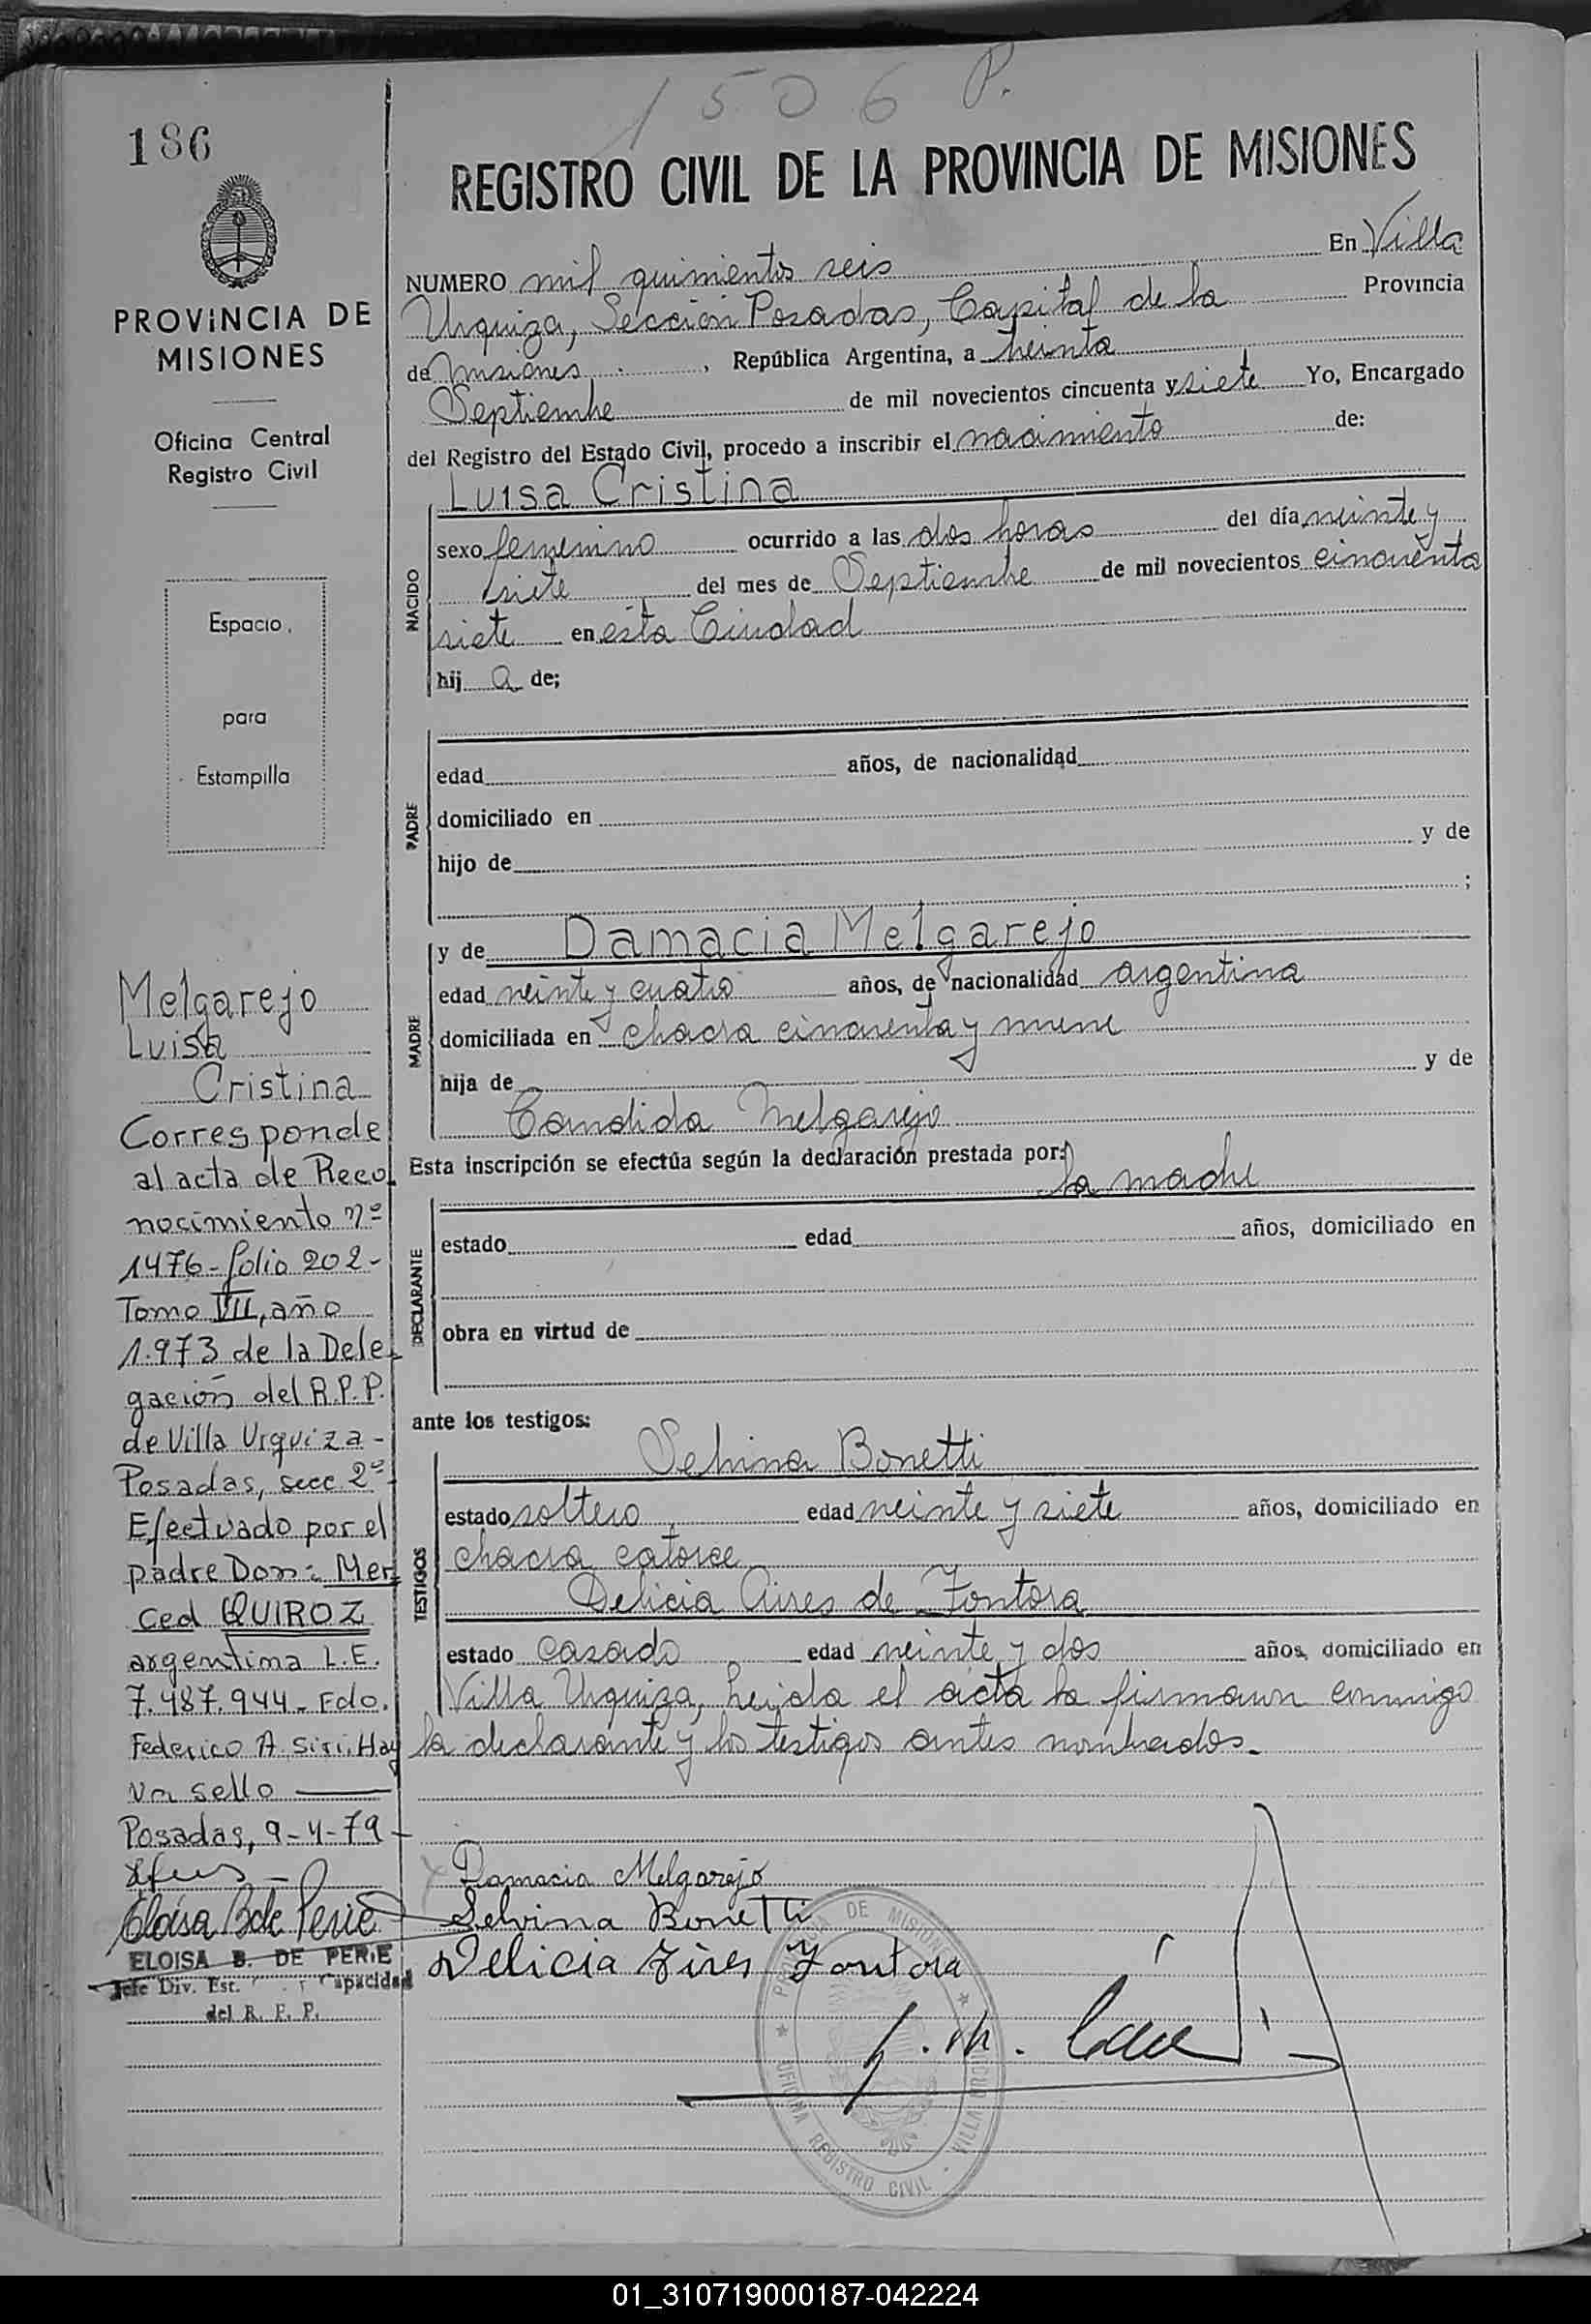 1506 P.
186
REGISTRO CIVIL DE LA PROVINCIA DE MISIONES
PROVINCIA DE
MISIONES
Oficina Central
Registro Civil
Espacio
para
Estampilla
NUMERO mil quinientos seis En Villa
Urquiza, Sección Posadas, Capital de la Provincia
de Misiones, República Argentina, a treinta
Septiembre de mil novecientos cincuenta y siete Yo, Encargado
del Registro del Estado Civil, procedo a inscribir el nacimiento de:
Luisa Cristina
NACIDO
sexo femenino ocurrido a las dos horas del día veinte y
siete del mes de Septiembre de mil novecientos cincuenta
siete en ésta Ciudad
hij a de;
PADRE
edad años, de nacionalidad
domiciliado en
hijo de y de
;
MADRE
y de Damacia Melgarejo
edad veinte y cuatro años, de nacionalidad argentina
domiciliada en chacra cincuenta y nueve
hija de y de
Candida Melgarejo
Esta inscripción se efectúa según la declaración prestada por:
la madre
DECLARANTE
estado edad años, domiciliado en
obra en virtud de
ante los testigos:
TESTIGOS
Selvina Bonetti
estado soltero edad veinte y siete años, domiciliado en
chacra catorce
Delicia Aires de Fontora
estado casado edad veinte y dos años, domiciliado en
Villa Urquiza, leida el acta la firmaron conmigo
la declarante y los testigos antes nombrados.
Damacia Melgarejo
Selvina Bonetti
Delicia Aires Fontora
PROVINCIA DE MISIONES
OFICINA REGISTRO CIVIL
Melgarejo
Luisa
Cristina
Corresponde
al acta de Reco
nocimiento nº
1476-folio 202-
Tomo VII, año
1.973 de la Dele
gación del R.P.P.
de Villa Urquiza-
Posadas, secc. 2º
Efectuado por el
padre Don: Mer
ced QUIROZ
argentina L.E.
7.487.944- Fdo.
Federico A. Siri. Hay
un sello
Posadas, 9-4-79-
Eloisa B de Perié
ELOISA B. DE PERIE
Jefe Div. Est. Capacidad
del R. P. P.
01_310719000187-042224